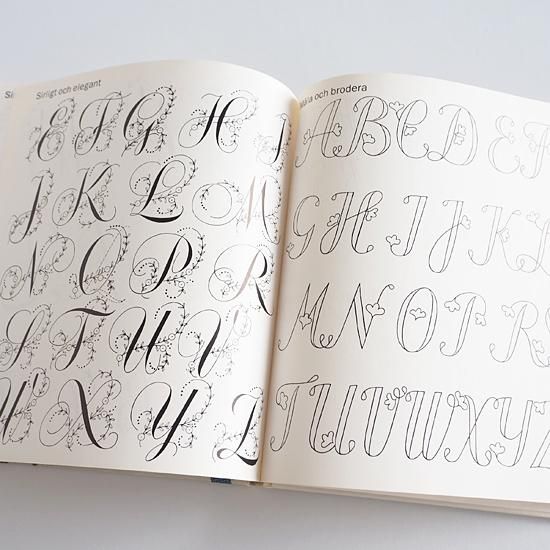 Sirligt och elegant
E F G H I
J K L M
N O P R
S T U V
W X Y Z
och brodera
A B C D E F
G H I J K L
M N O P R S
T U V W X Y Z